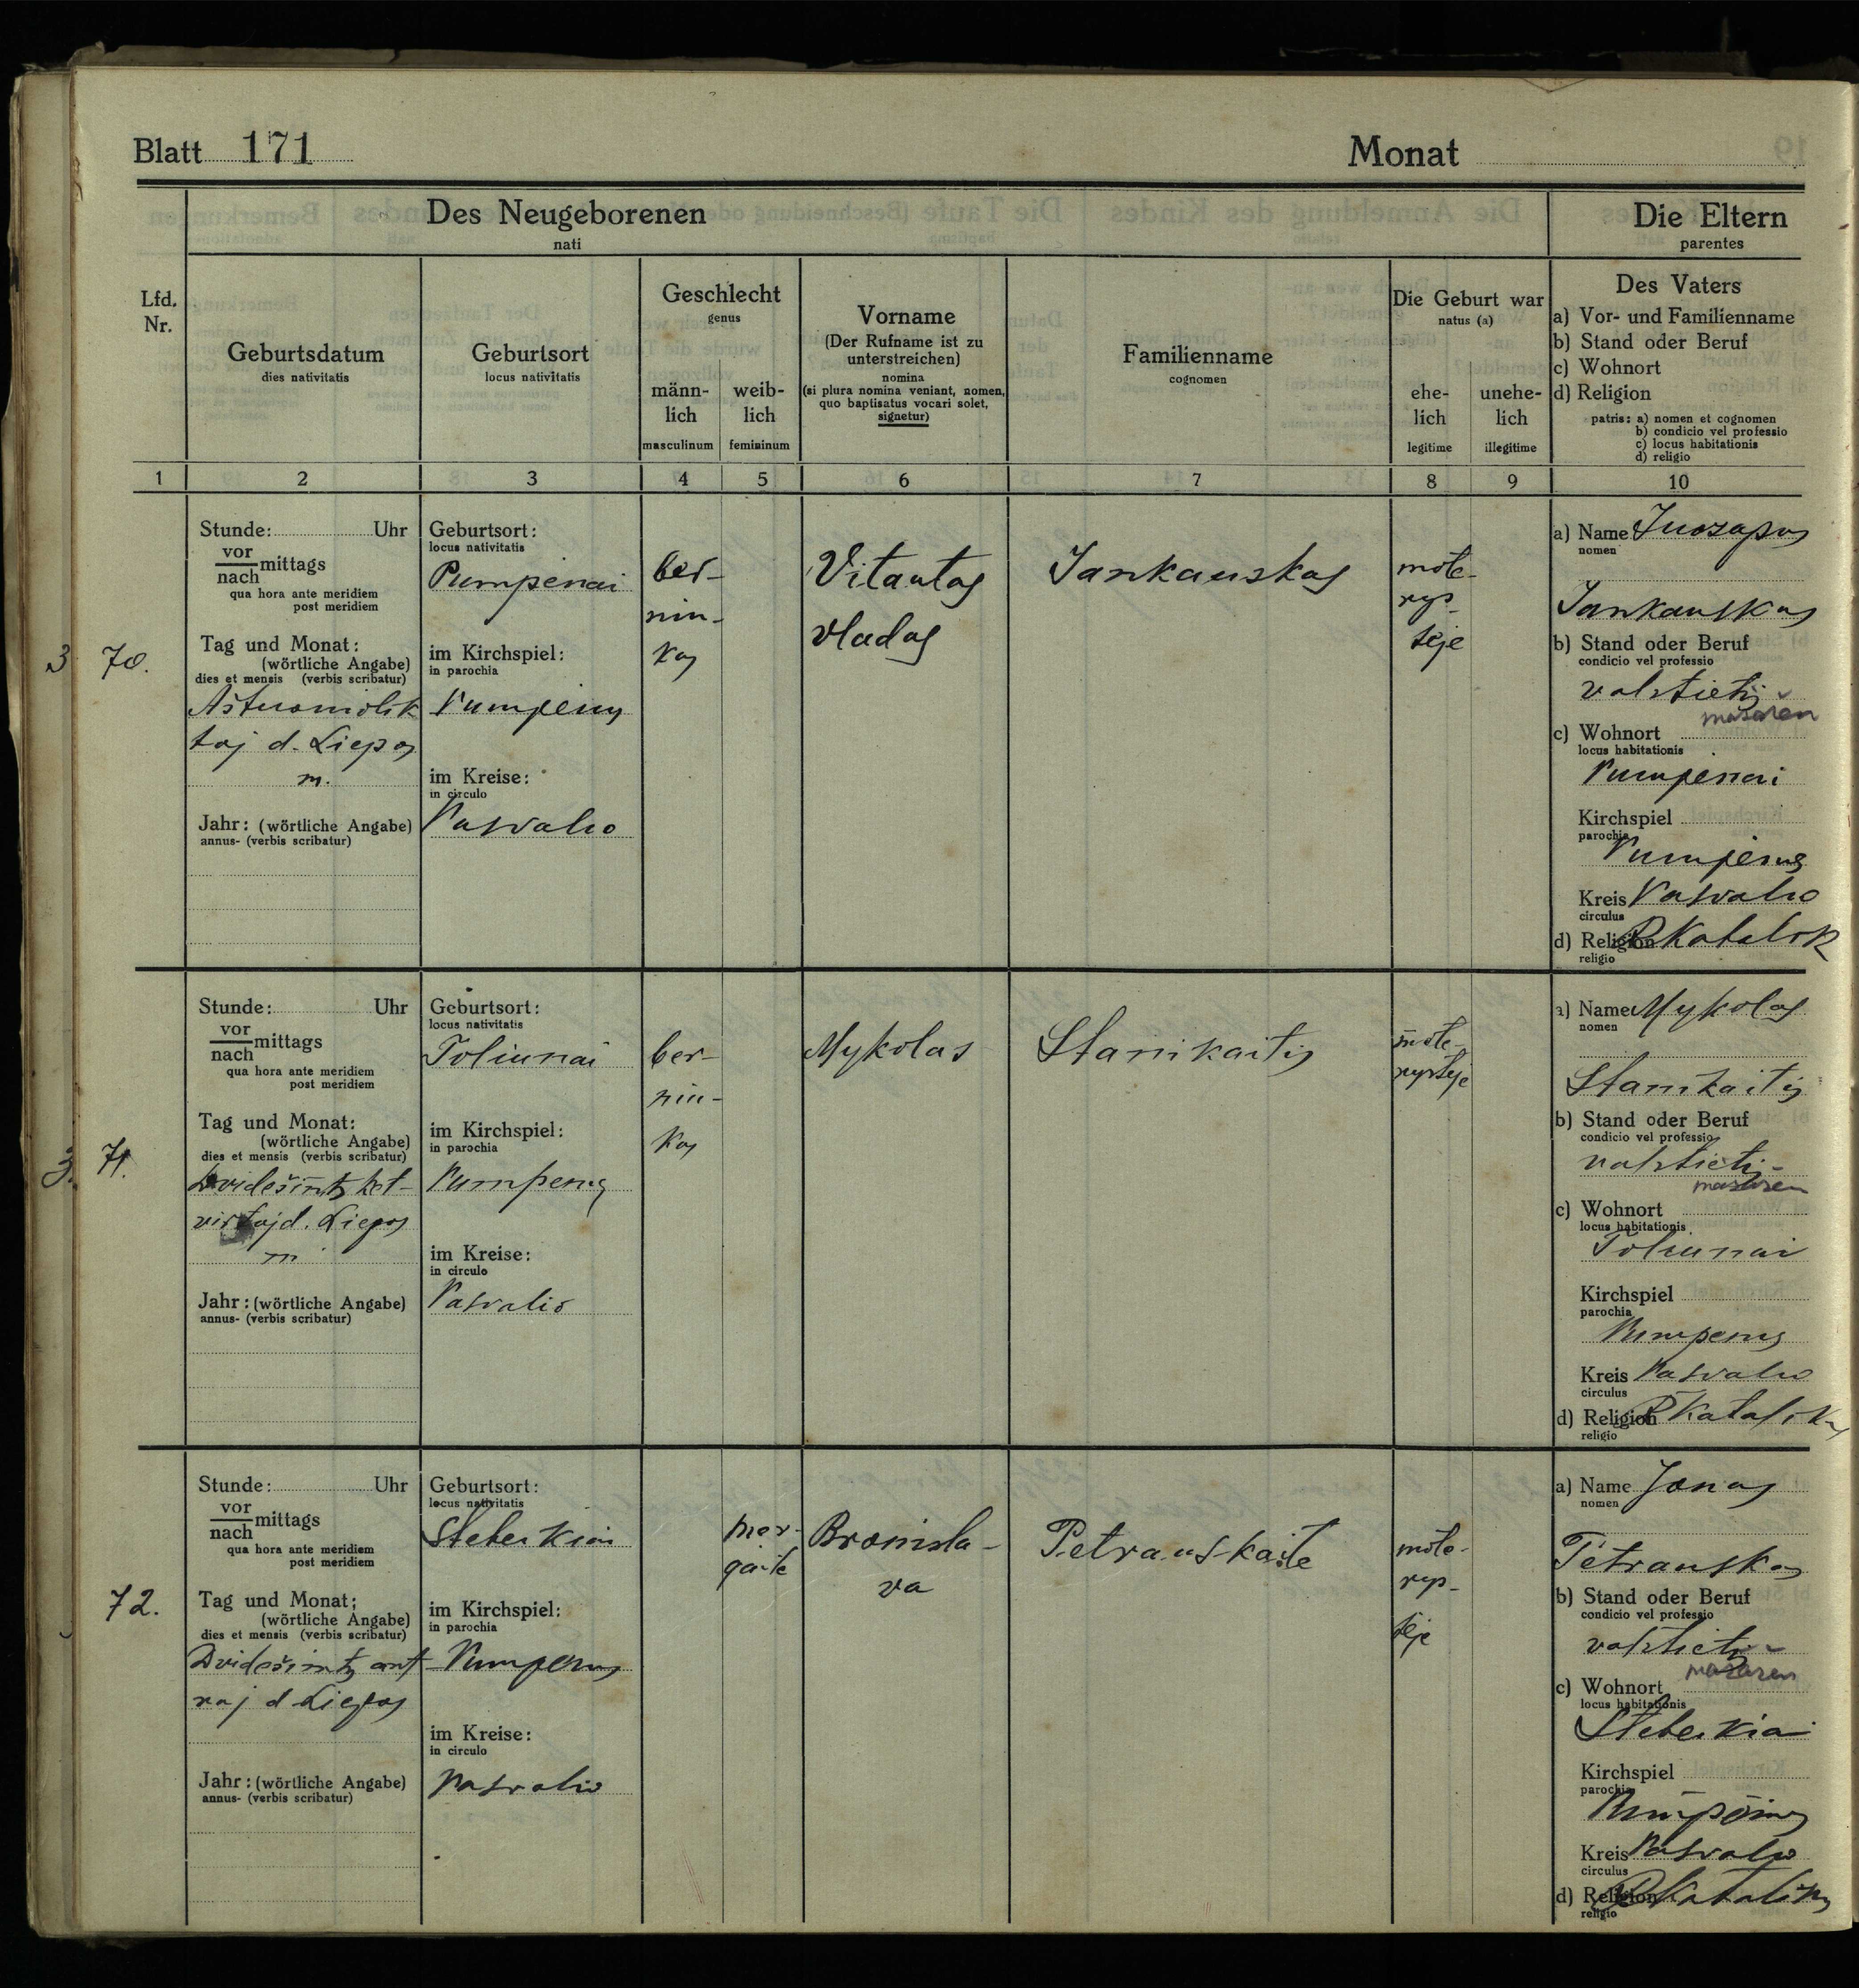 Blatt 171
Monat
Des Neugeborenen
nati
Die Eltern
parentes
Lfd.
Nr.
Geburtsdatum
dies nativitatis
Geburtsort
locus nativitatis
Geschlecht
genus
männ-
lich
masculinum
weib-
lich
femininum
Vorname
(Der Rufname ist zu
unterstreichen)
nomina
(si plura nomina veniant, nomen,
quo baptisatus vocari solet,
signetur)
Familienname
cognomen
Die Geburt war
natus (a)
ehe-
lich
legitime
unehe-
lich
illegitime
Des Vaters
a) Vor- und Familienname
b) Stand oder Beruf
c) Wohnort
d) Religion
patris: a) nomen et cognomen
b) condicio vel professio
c) locus habitationis
d) religio
1 2 3 4 5 6 7 8 9 10
3 70.
Stunde: Uhr
vor
nach mittags
qua hora ante meridiem
post meridiem
Tag und Monat:
(wörtliche Angabe)
dies et mensis (verbis scribatur)
Aštuoniolik
toj d. Liepos
m.
Jahr: (wörtliche Angabe)
annus- (verbis scribatur)
Geburtsort:
locus nativitatis
Pumpenai
im Kirchspiel:
in parochia
Pumpėnų
im Kreise:
in circulo
Pasvalio
ber-
nin-
kas
Vitautas
Vladas
Jankauskas
mote-
rys-
tėje
a) Name Juozapas
nomen
Jankauskas
b) Stand oder Beruf
condicio vel professio
valstietis
mažažem
c) Wohnort
locus habitationis
Pumpėnai
Kirchspiel
parochia
Pumpėnų
Kreis Pasvalio
circulus
d) Religion R Katalik
religio
3. 71.
Stunde: Uhr
vor
nach mittags
qua hora ante meridiem
post meridiem
Tag und Monat:
(wörtliche Angabe)
dies et mensis (verbis scribatur)
Dvidešimts ket-
virtoj d. Liepos
m
Jahr: (wörtliche Angabe)
annus- (verbis scribatur)
Geburtsort:
locus nativitatis
Toliunai
im Kirchspiel:
in parochia
Pumpenų
im Kreise:
in circulo
Pasvalio
ber-
nin-
kas
Mykolas
Stanikaitis
mote-
rystėje
a) Name Mykolas
nomen
Stanikaitis
b) Stand oder Beruf
condicio vel professio
valstietis
mažažem
c) Wohnort
locus habitationis
Toliunai
Kirchspiel
parochia
Pumpenų
Kreis Pasvalio
circulus
d) Religion R Katalikas
religio
72.
Stunde: Uhr
vor
nach mittags
qua hora ante meridiem
post meridiem
Tag und Monat:
(wörtliche Angabe)
dies et mensis (verbis scribatur)
Dvidešimts ant
roj d Liepos
Jahr: (wörtliche Angabe)
annus- (verbis scribatur)
Geburtsort:
locus nativitatis
Steberkiai
im Kirchspiel:
in parochia
Pumpenų
im Kreise:
in circulo
Pasvalio
mer-
gaite
Bronisla-
va
Petrauskaite
mote-
rys-
tėje
a) Name Jonas
nomen
Petrauskas
b) Stand oder Beruf
condicio vel professio
valstietis
mažažem
c) Wohnort
locus habitationis
Steberkiai
Kirchspiel
parochia
Pumpėnų
Kreis Pasvalio
circulus
d) Religion R Katalikas
religio